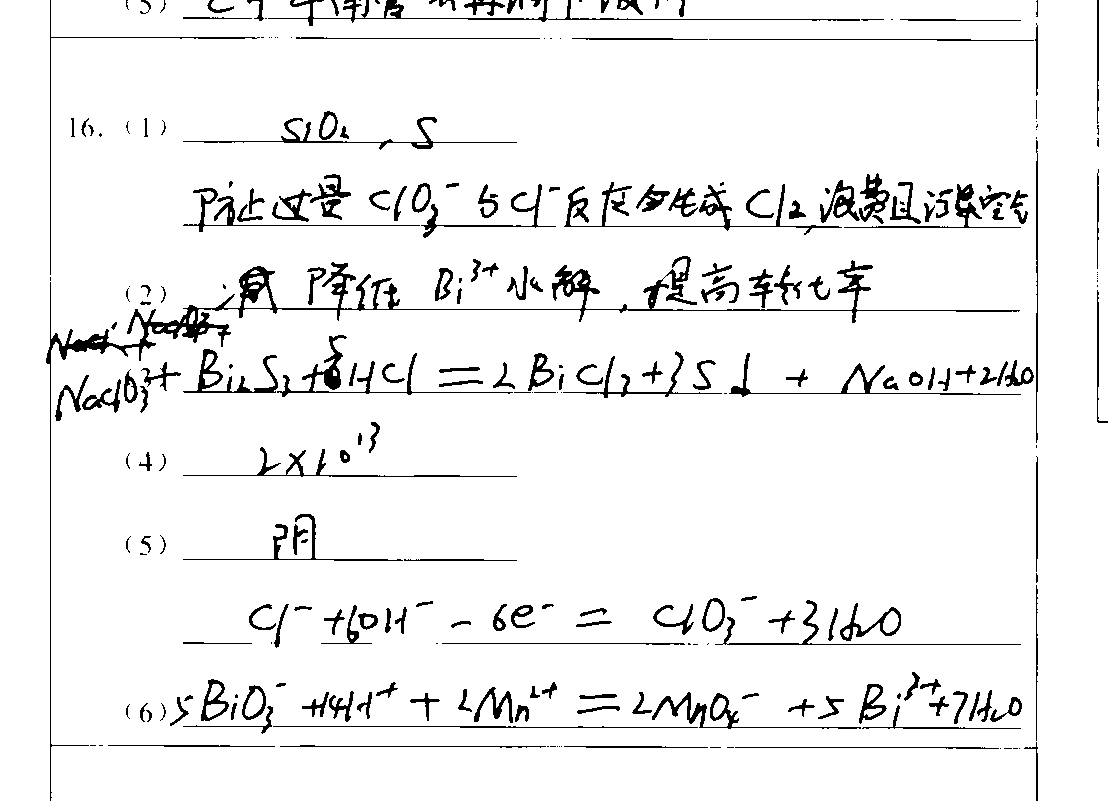 16.(1) SiO₂、S
防止过量 ClO₃⁻ 与Cl⁻反应会生成 Cl₂,浪费且污染空气
(2) 降低 Bi³⁺水解,提高转化率
NaClO₃+ Bi₂S₃+6HCl=2BiCl₃+3S↓ + NaOH+2H₂O
(4) 2×10¹³
(5) 阴
Cl⁻+6OH⁻-6e⁻= ClO₃⁻+3H₂O
(6)5BiO₃⁻+14H⁺+2Mn²⁺=2MnO₄⁻+5Bi³⁺+7H₂O